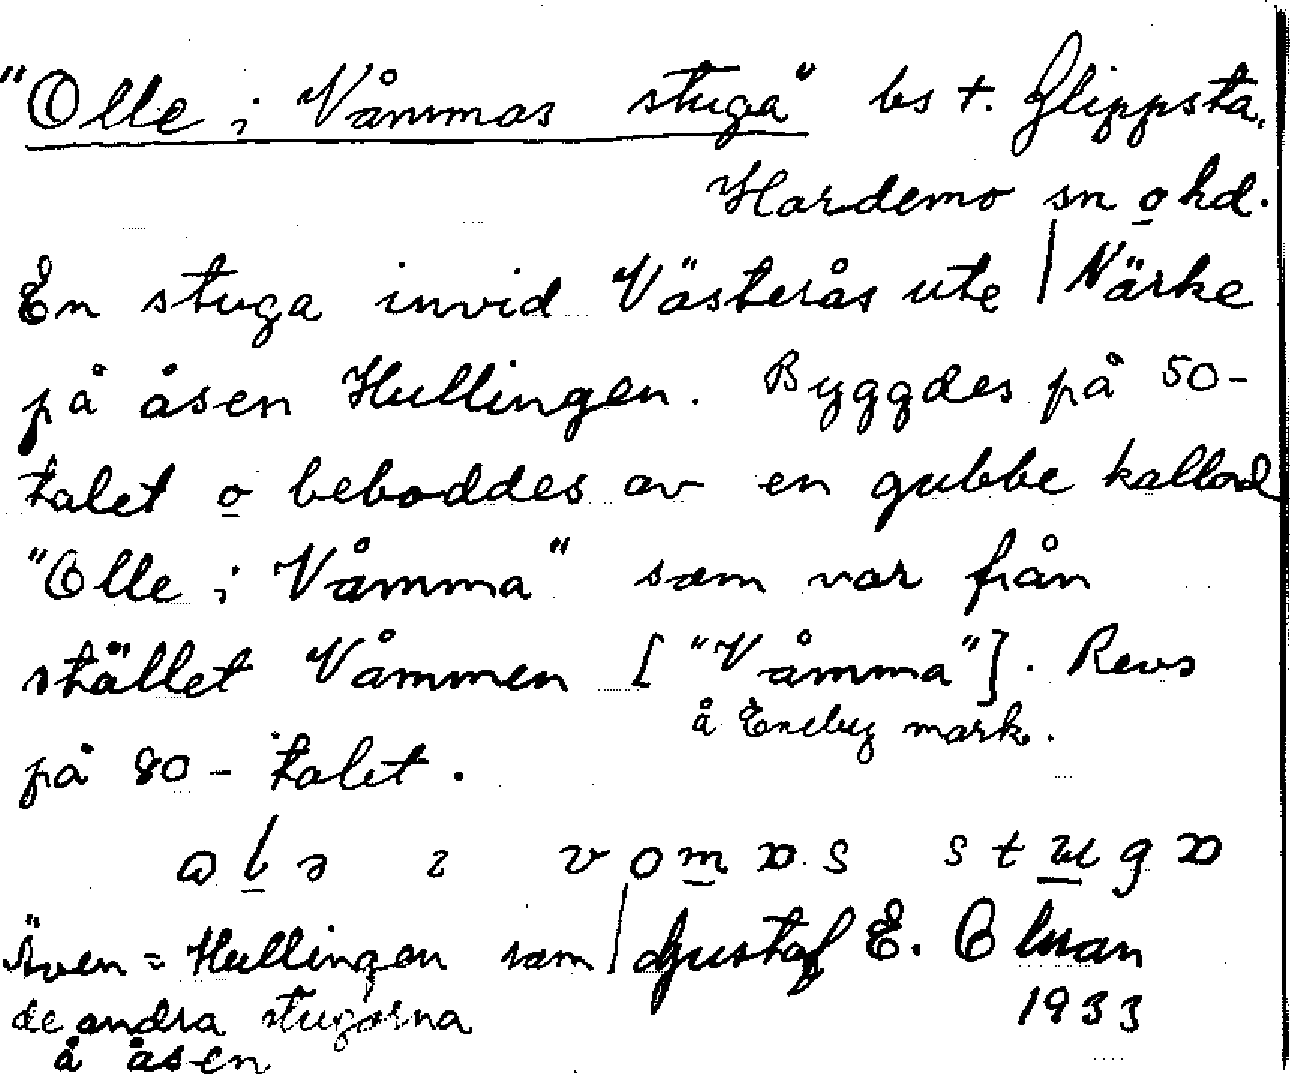 "Olle i Våmmas stuga" bs t. Glippsta,
Hardemo sn o hd.
En stuga invid Västerås ute | Närke
på åsen Hullingen. Byggdes på 50-
talet o beboddes av en gubbe kallad
"Olle i Våmma" som var från
stället Våmmen ["Våmma"]. Revs
å Eneby mark.
på 80-talet.
i vomas stuga
Även = Hullingen som | Gustaf E.
de andra stugorna 1933
å åsen